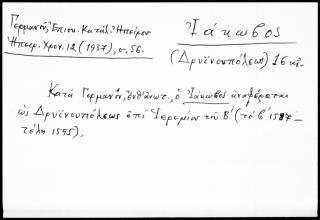 Γερμανοῦ, Ἐπισκ. Κατάλ. Ἠπείρου
Ἠπειρ. Χρον. 12 (1937), σ. 56.
Ἰάκωβος
(Δρυϊνουπόλεως) 16 αἰ.
Κατὰ Γερμανόν, ἐνθ' ἀνωτ., ὁ Ἰάκωβος ἀναφέρεται
ὡς Δρυϊνουπόλεως ἐπὶ Ἱερεμίου τοῦ Β' (τὸ β' 1587 –
τέλη 1595).